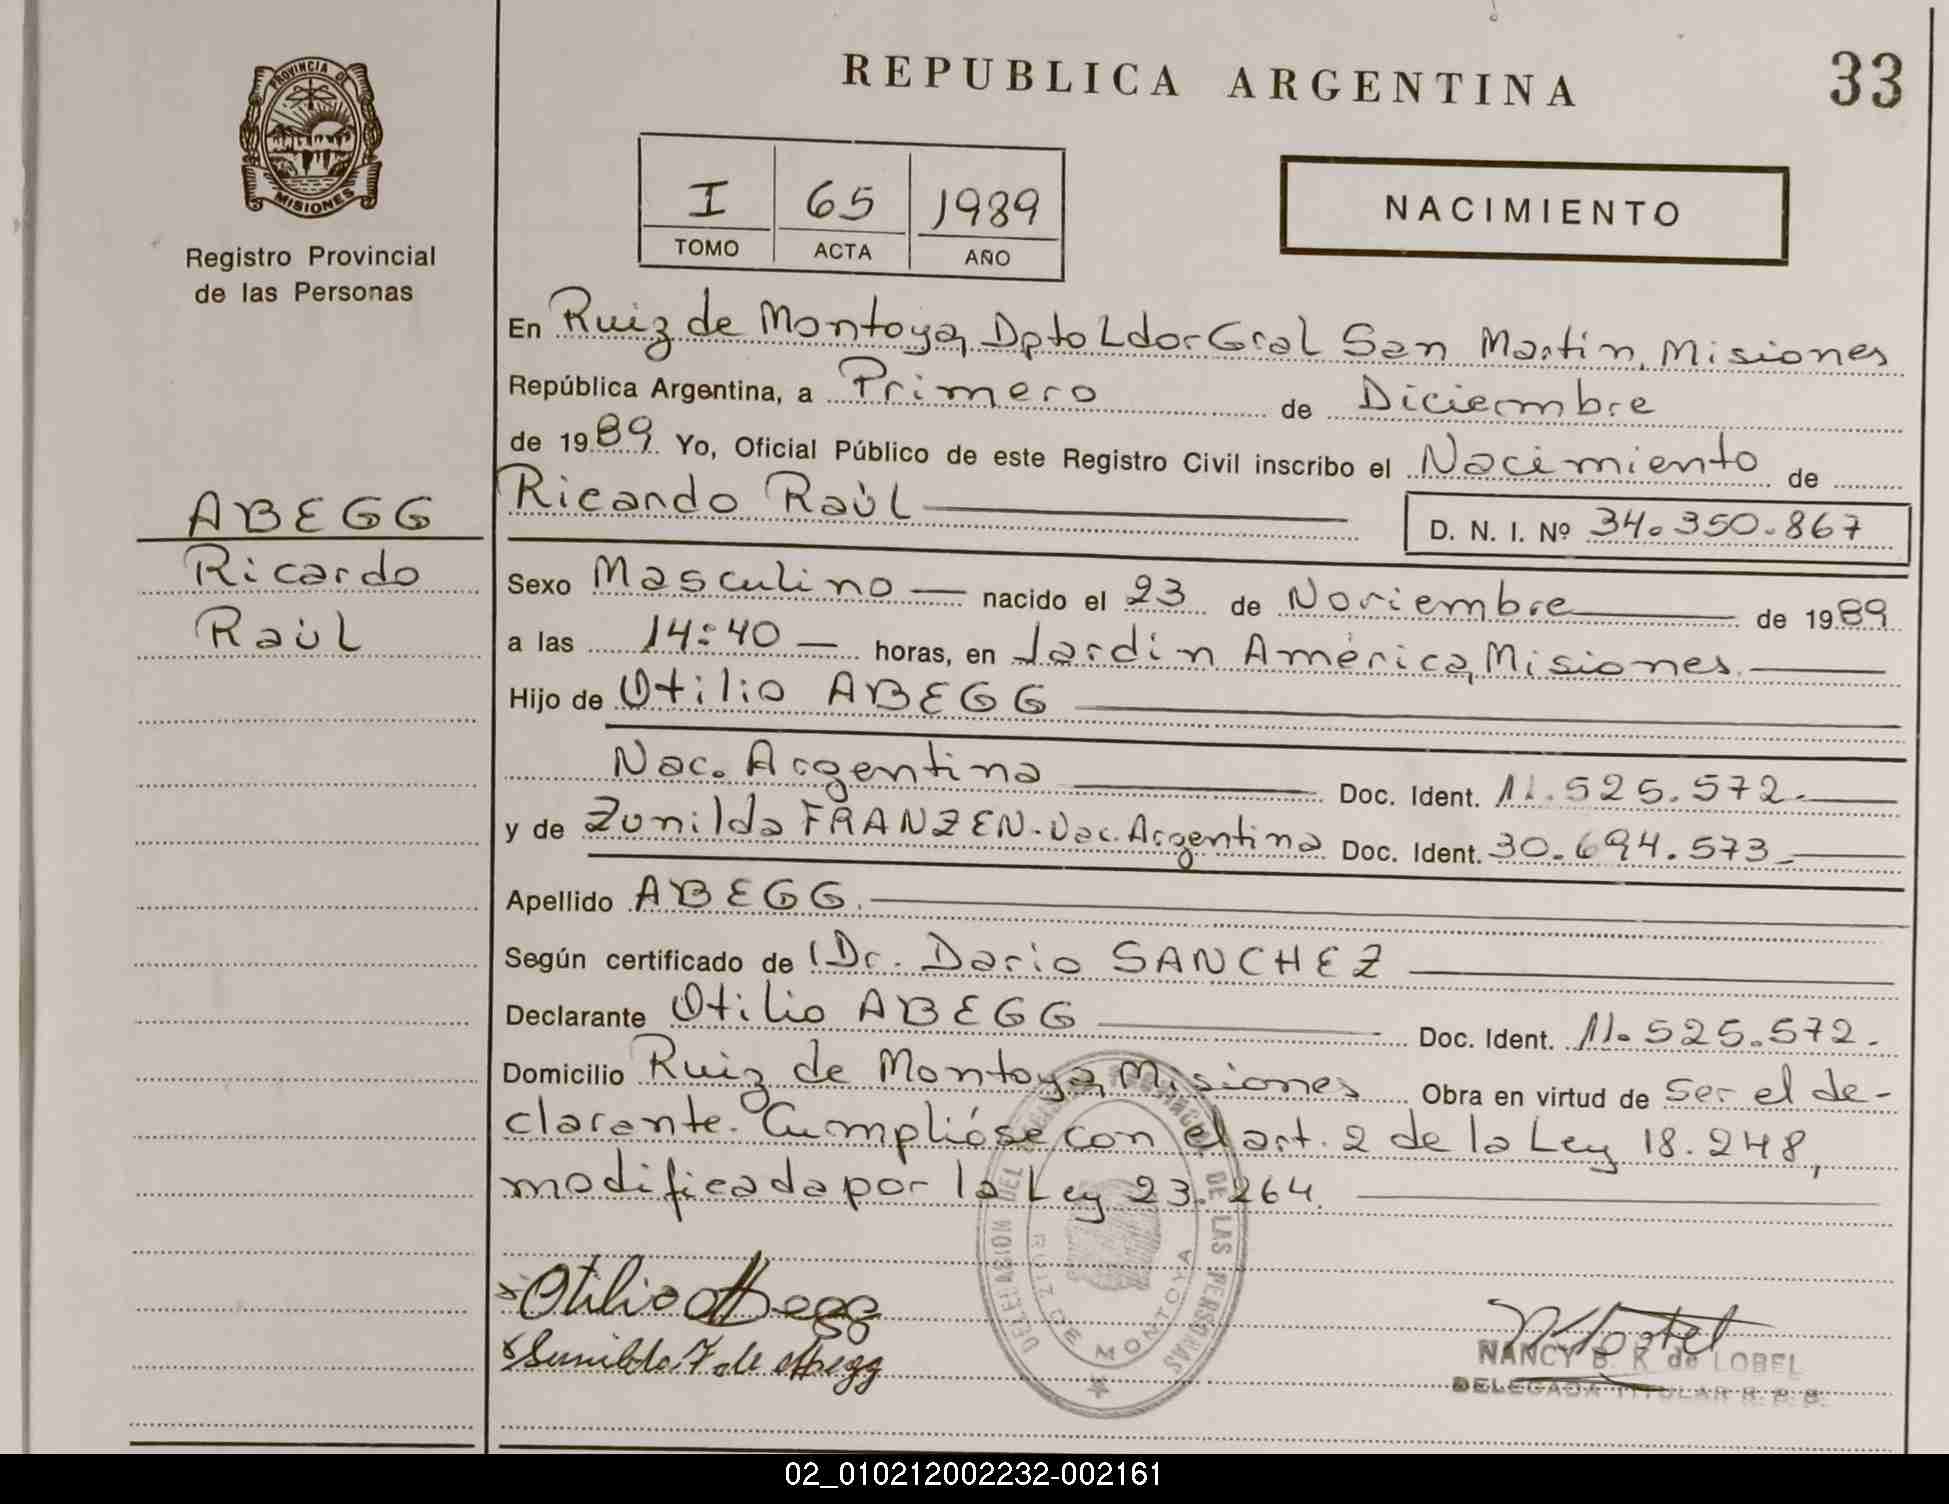 PROVINCIA DE
MISIONES
Registro Provincial
de las Personas
ABEGG
Ricardo
Raúl
REPUBLICA ARGENTINA
33
I 65 1989
TOMO ACTA AÑO
NACIMIENTO
En Ruiz de Montoya, Dpto Ldor Gral San Martin, Misiones
República Argentina, a Primero de Diciembre
de 1989 Yo, Oficial Público de este Registro Civil inscribo el Nacimiento de
Ricardo Raúl
D. N. I. Nº 34.350.867
Sexo Masculino nacido el 23 de Noviembre de 1989
a las 14:40 horas, en Jardín América, Misiones.
Hijo de Otilio ABEGG
Nac. Argentina Doc. Ident. 11.525.572.
y de Zunilda FRANZEN. Nac. Argentina Doc. Ident. 30.694.573
Apellido ABEGG.
Según certificado de Dr. Dario SANCHEZ
Declarante Otilio ABEGG Doc. Ident. 11.525.572.
Domicilio Ruiz de Montoya, Misiones Obra en virtud de ser el de-
clarante. Cumplióse con el art. 2 de la Ley 18.248,
modificada por la Ley 23.264.
DELEGACION DEL REGISTRO PROVINCIAL DE LAS PERSONAS
RUIZ DE MONTOYA
Otilio Abegg
Sunilda F de Abegg
NANCY B. K de LOBEL
DELEGADA TITULAR R. P. P.
02_010212002232-002161